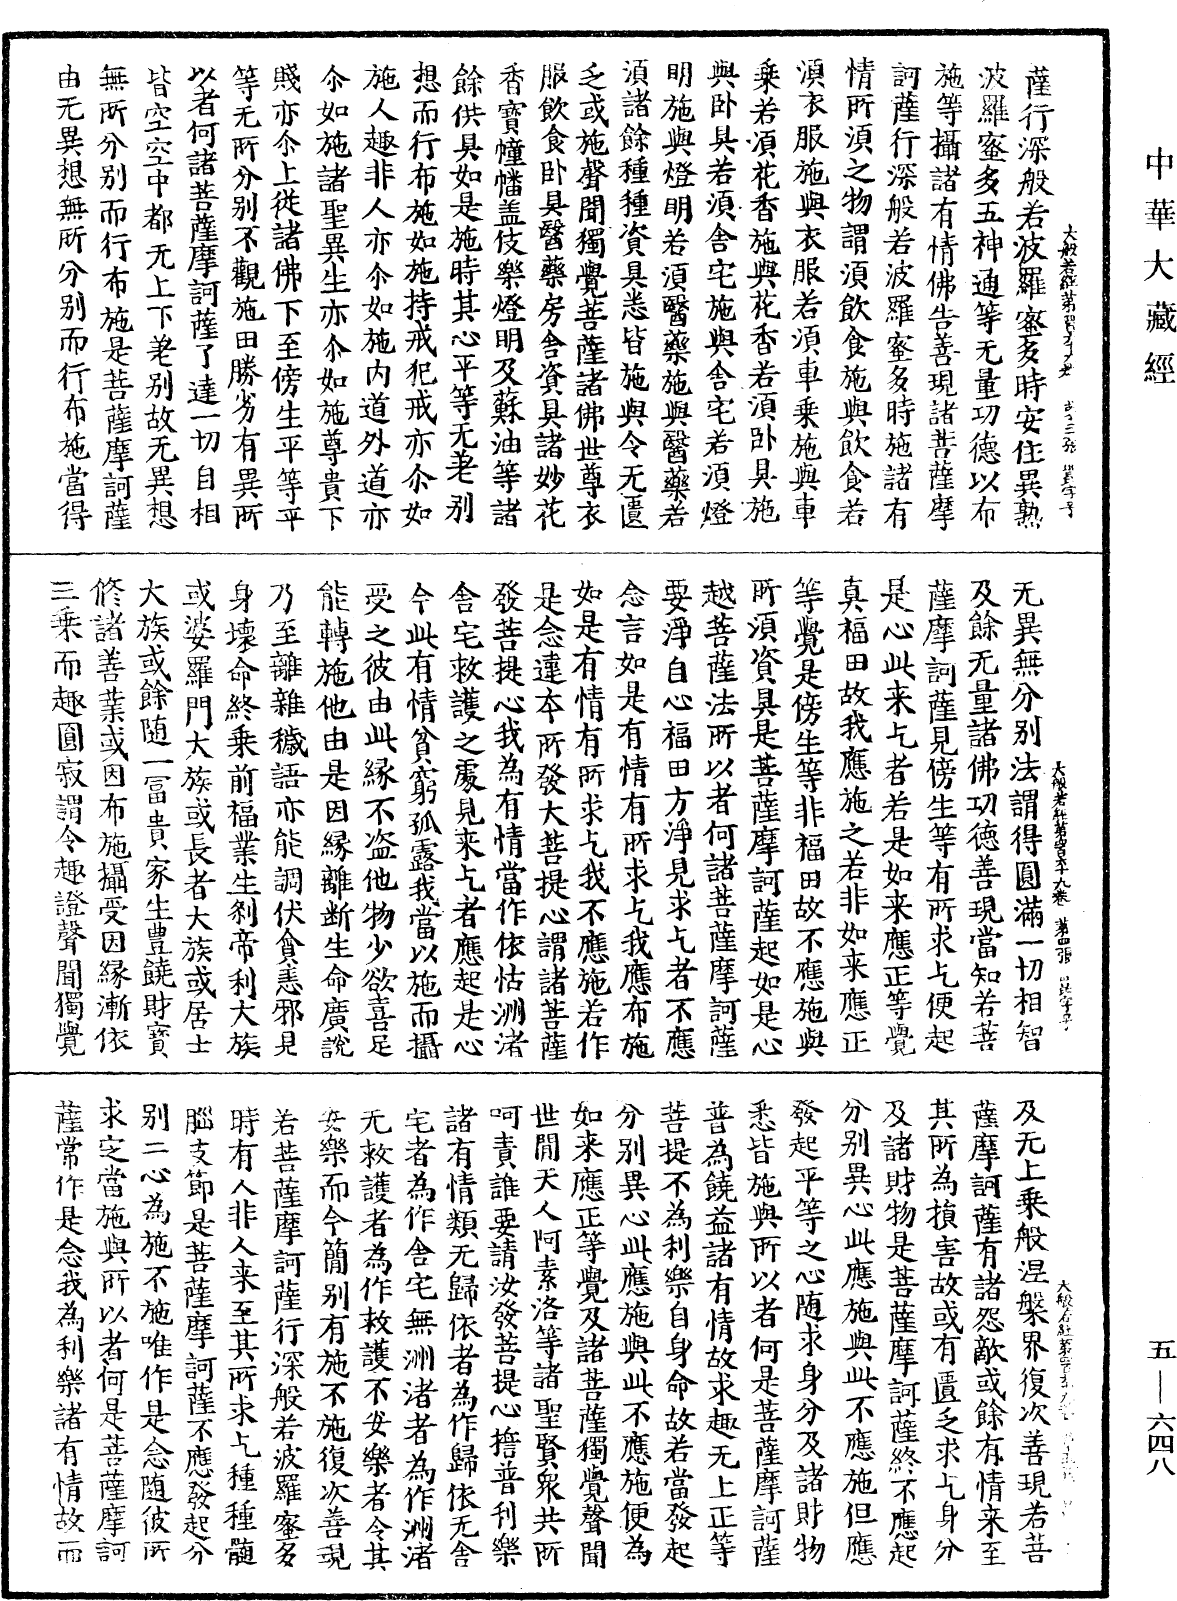 中華大藏經
五—六四八
薩行深般若波羅蜜多時安住異熟
波羅蜜多五神通等无量功德以布
施等攝諸有情佛告善現諸菩薩摩
訶薩行深般若波羅蜜多時施諸有
情所須之物謂須飲食施與飲食若
須衣服施與衣服若須車乘施與車
乘若須花香施與花香若須卧具施
與卧具若須舍宅施與舍宅若須燈
明施與燈明若須醫藥施與醫藥若
須諸餘種種資具悉皆施與令无匱
乏或施聲聞獨覺菩薩諸佛世尊衣
服飲食卧具醫藥房舍資具諸妙花
香寶幢幡盖伎樂燈明及蘇油等諸
餘供具如是施時其心平等无差別
想而行布施如施持戒犯戒亦尒如
施人趣非人亦尒如施內道外道亦
尒如施諸聖異生亦尒如施尊貴下
賤亦尒上從諸佛下至傍生平等平
等无所分別不觀施田勝劣有異所
以者何諸菩薩摩訶薩了達一切自相
皆空空中都无上下差別故无異想
無所分別而行布施是菩薩摩訶薩
由无異想無所分別而行布施當得
无異無分別法謂得圓滿一切相智
及餘无量諸佛功德善現當知若菩
薩摩訶薩見傍生等有所求乞便起
是心此来乞者若是如来應正等覺
真福田故我應施之若非如来應正
等覺是傍生等非福田故不應施與
所須資具是菩薩摩訶薩起如是心
越菩薩法所以者何諸菩薩摩訶薩
要淨自心福田方淨見求乞者不應
念言如是有情有所求乞我應布施
如是有情有所求乞我不應施若作
是念違本所發大菩提心謂諸菩薩
發菩提心我為有情當作依怙洲渚
舍宅救護之處見来乞者應起是心
今此有情貧窮孤露我當以施而攝
受之彼由此緣不盜他物少欲喜足
能轉施他由是因緣離斷生命廣說
乃至離雜穢語亦能調伏貪恚邪見
身壞命終乘前福業生剎帝利大族
或婆羅門大族或長者大族或居士
大族或餘隨一冨貴家生豊饒財寶
修諸善業或因布施攝受因緣漸依
三乘而趣圓寂謂令趣證聲聞獨覺
及无上乘般涅槃界復次善現若菩
薩摩訶薩有諸怨敵或餘有情来至
其所為損害故或有匱乏求乞身分
及諸財物是菩薩摩訶薩終不應起
分別異心此應施與此不應施但應
發起平等之心隨求身分及諸財物
悉皆施與所以者何是菩薩摩訶薩
普為饒益諸有情故求趣无上正等
菩提不為利樂自身命故若當發起
分別異心此應施與此不應施便為
如来應正等覺及諸菩薩獨覺聲聞
世間天人阿素洛等諸聖賢衆共所
呵責誰要請汝發菩提心擔普利樂
諸有情類无歸依者為作歸依无舍
宅者為作舍宅無洲渚者為作洲渚
无救護者為作救護不安樂者令其
安樂而今簡別有施不施復次善現
若菩薩摩訶薩行深般若波羅蜜多
時有人非人来至其所求乞種種髓
腦支節是菩薩摩訶薩不應發起分
別二心為施不施唯作是念隨彼所
求定當施與所以者何是菩薩摩訶
薩常作是念我為利樂諸有情故而